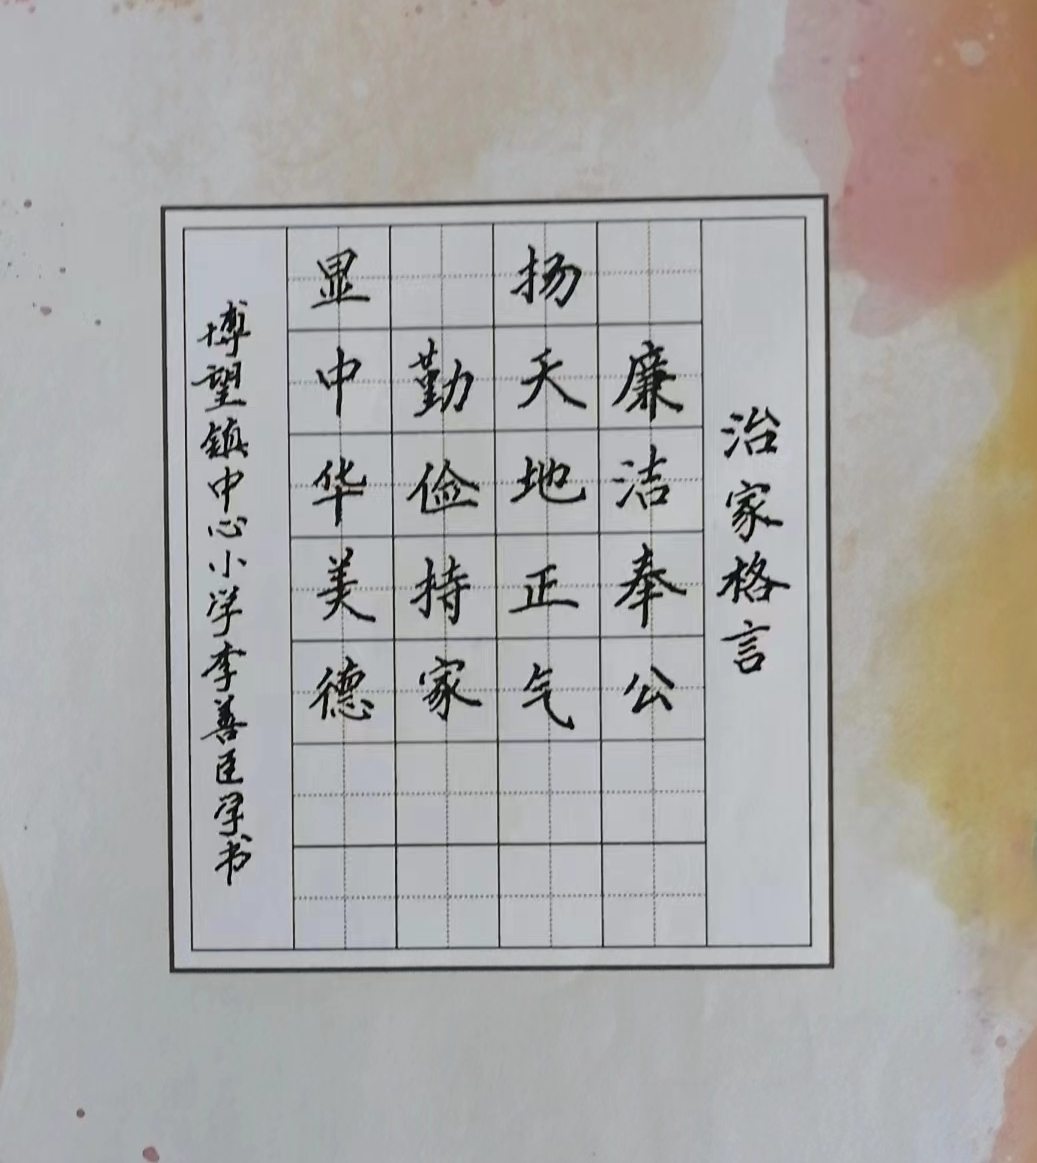 治家格言
廉洁奉公
扬天地正气
勤俭持家
显中华美德
博望镇中心小学李善臣学书